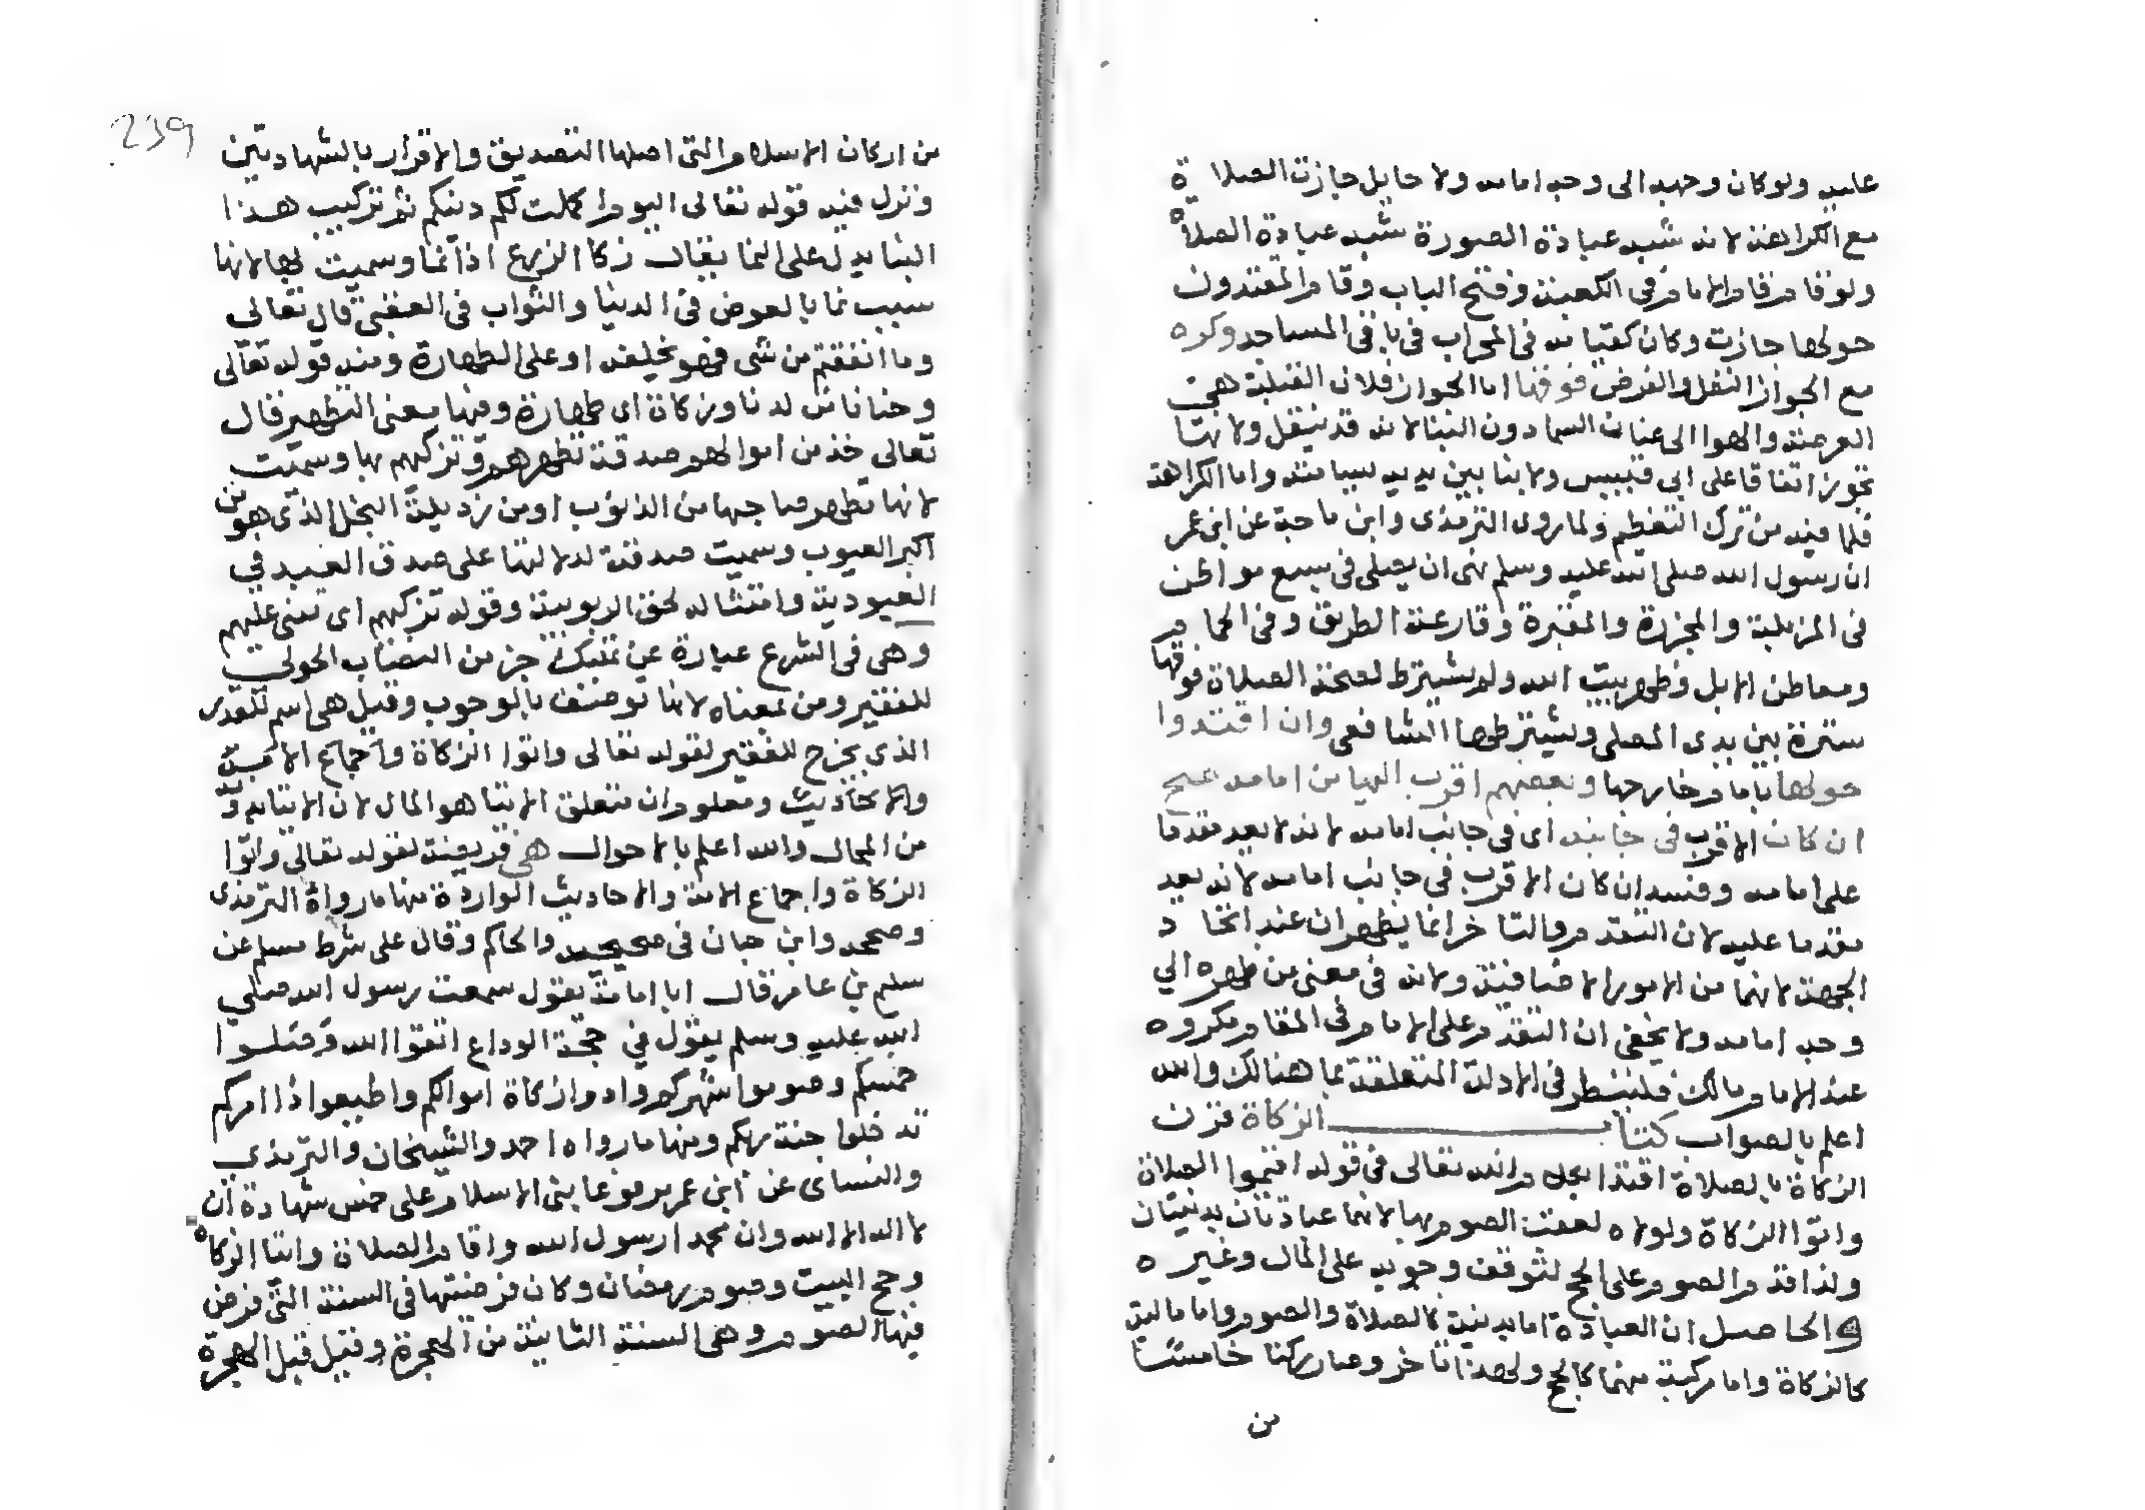 عليه ولو كان وجهه الى وجه امامه ولا حايل جازت الصلاة
مع الكراهة لانه شبه عبادة الصورة شبه عبادة الصلاة
ولو قام قام الامام في الكعبة وفتح الباب وقام المقتدون
حولها جازت وكان كقيامه في المحراب في باقي المساجد وكره
مع الجواز النفل والفرض فوقها اما الجواز فلان القبلة هي
العرصة والهوا الى عنان السما دون البنا لانه قد ينقل ولانها
تجوز اتفاقا على ابي قبيس ولا بنا بين يديه سامته واما الكراهة
فلما فيه من ترك التعظيم ولما روى الترمذي وابن ماجة عن ابن عمر
ان رسول الله صلى الله عليه وسلم نهى ان يصلى في سبع مواطن
في المزبلة والمجزرة والمقبرة وقارعة الطريق وفي الحمام
ومعاطن الابل وظهر بيت الله ولم يشترط لصحة الصلاة فوقها
سترة بين يدي المصلي ويشترطها الشافعي وان اقتدوا
حولها بامام خارجها وبعضهم اقرب اليها من امامه صح
ان كان الاقرب في جانبه اي في جانب امامه لانه لا يعد مقدما
على امامه وفسد ان كان الاقرب في جانب امامه لانه يعد
مقدما عليه لان التقدم والتاخر انما يظهران عند اتحاد
الجهة لانهما من الامور الاضافية ولانه في معنى من ظهره الى
وجه امامه ولا يخفى ان التقدم على الامام في المقام مكروه
عند الامام مالك فلينظر في الادلة المتعلقة بما هنالك والله
اعلم بالصواب كتاب الزكاة قرن
الزكاة بالصلاة اقتدا بكلام الله تعالى في قوله اقيموا الصلاة
واتوا الزكاة ولولاه لعقب الصوم بها لانهما عبادتان بدنيتان
ولذا قدم الصوم على الحج لتوقف وجوبه على المال وغيره
والحاصل ان العبادة اما بدنية كالصلاة والصوم واما مالية
كالزكاة واما مركبة منهما كالحج ولهذا تاخر وصار ركنا خامسا
من
239
من اركان الاسلام التي اصلها التصديق والاقرار بالشهادتين
ونزل فيه قوله تعالى اليوم اكملت لكم دينكم ثم تركيب هذا
البنا يدل على النما يقال زكا الزرع اذا نما وسميت بها لانها
سبب نما بالعوض في الدنيا والثواب في العقبى قال تعالى
وما انفقتم من شي فهو يخلفه او على الطهارة ومنه قوله تعالى
وحنانا من لدنا وزكاة اي طهارة ومنها معنى التطهير قال
تعالى خذ من اموالهم صدقة تطهرهم وتزكيهم بها وسميت
لانها تطهر صاحبها من الذنوب او من رذيلة البخل الذي هو من
اكبر العيوب وسميت صدقة لدلالتها على صدق العبد في
العبودية وامتثاله لحق الربوبية وقوله تزكيهم اي تثني عليهم
وهي في الشرع عبارة عن تمليك جز من النصاب الحولي
للفقير ومن بمعناه لانها توصف بالوجوب وقيل هي اسم للقدر
الذي يخرج للفقير لقوله تعالى واتوا الزكاة واجماع الامة
والاحاديث ومعلوم ان متعلق الايتا هو المال لان الايتا به
من المحال والله اعلم بالاحوال هي فريضة لقوله تعالى واتوا
الزكاة واجماع الامة والاحاديث الواردة منها ما رواه الترمذي
وصححه وابن حبان في صحيحه والحاكم وقال على شرط مسلم عن
سليم بن عامر قال ابا امامة يقول سمعت رسول الله صلى
الله عليه وسلم يقول في حجة الوداع اتقوا الله وصلوا
خمسكم وصوموا شهركم وادوا زكاة اموالكم واطيعوا ذا امركم
تدخلوا جنة ربكم ومنها ما رواه احمد والشيخان والترمذي
والنسائي عن ابن عمر مرفوعا بني الاسلام على خمس شهادة ان
لا اله الا الله وان محمدا رسول الله واقام الصلاة وايتا الزكاة
وحج البيت وصوم رمضان وكان فرضيتها في السنة التي فرض
فيها الصوم وهي السنة الثانية من الهجرة وقيل قبل الهجرة